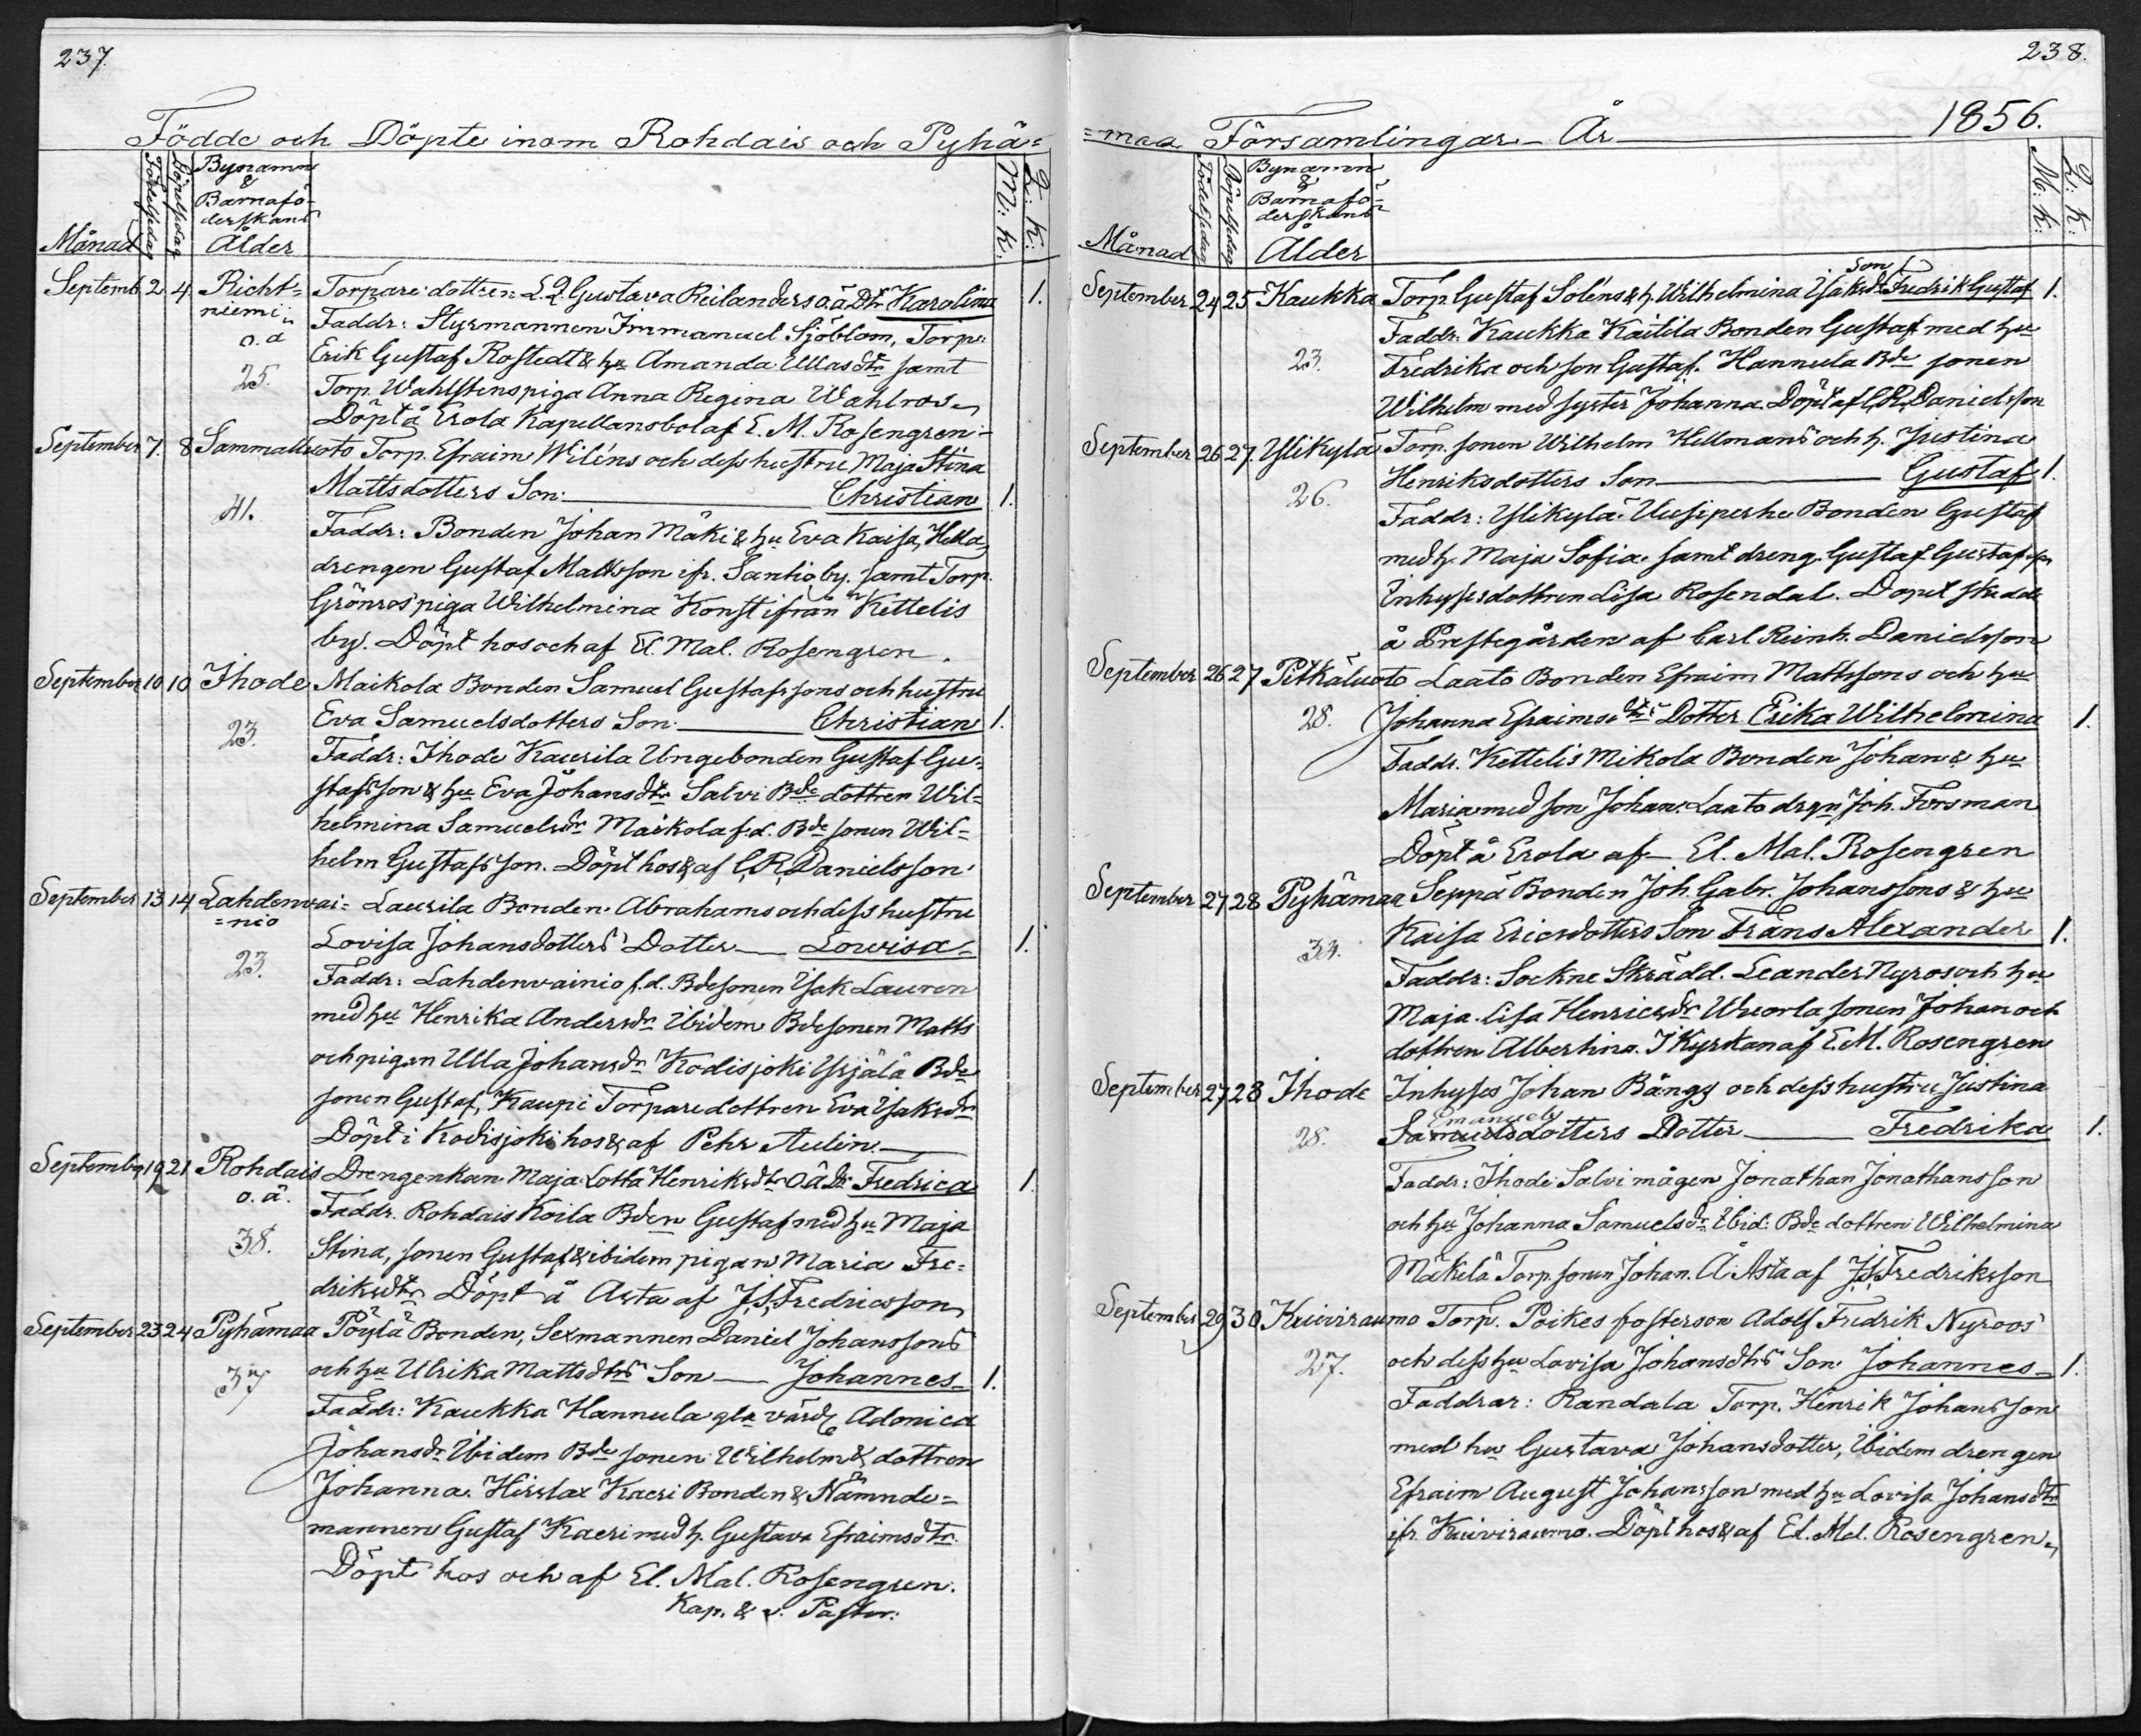 237.
Födde och Döpte inom Rohdais och Pyhä=
Månad
Födelsedag
Döpelsedag
Bynamn
&
Barnafö-
derskans
Ålder
M: k:
Q: k:
Septemb. 2 4 Richt= Torpare dottren L.Q. Gustava Reilanders o.ä. Dtr Karolina 1.
niemi Faddr: Styrmannen Immanuel Sjöblom, Torp:
o.ä Erik Gustaf Rostedt & hu Amanda Ullasdtr samt
25. Torp. Wahlstens piga Anna Regina Wahlros
Döpt å Erola Kapellansbol af E. M. Rosengren
September 7. 8 Sammalluoto Torp. Efraim Wiléns och dess hustru Maja Stina
Mattsdotters Son: Christian 1.
41. Faddr: Bonden Johan Mäki & hu Eva Kaisa, Hella
drengen Gustaf Mattsson ifr. Santio by. samt Torp.
Grönros piga Wilhelmina Konst ifrån Kettelis
by. Döpt hos och af El. Mal. Rosengren.
September 10 10 Ihode Maikola Bonden Samuel Gustafssons och hustru
Eva Samuelsdotters Son Christian 1.
23. Faddr: Ihode Kaurila Ungebonden Gustaf Gu=
stafsson & hu Eva Johansdtr Salvi Bde dottren Wil=
helmina Samuelsdr Maikola f.d. Bde sonen Wil=
helm Gustafsson. Döpt hos & af C. R. Danielsson.
September 13 14 Lahdenvai= Laurila Bonden Abrahams och dess hustru
=nio Lovisa Johansdotters Dotter Lowisa 1.
23. Faddr: Lahdenvainio f.d. Bdesonen Isak Lauren
med hu Henrika Andersdr Ibidem Bdesonen Matts
och pigan Ulla Johansdr Kodisjoki Yrjälä Bde
sonen Gustaf, Kaupi Torparedottren Eva Isaksdr
Döpt i Kodisjoki hos & af Pehr Aulin.
September 19 21 Rohdais Drengenkan Maja Lotta Henriksdtr O.ä. Dr Fredrica 1.
o.ä. Faddr. Rohdais Koila Bden Gustaf med hu Maja
38. Stina, sonen Gustaf & ibidem pigan Maria Fre=
driksdtr Döpt å Arta af J. S. Fredricsson
September 23 24 Pyhämaa Pöylä Bonden, Sexmannen Daniel Johanssons
och hu Ulrika Mattsdtrs Son Johannes 1.
37 Faddr: Kaukka Hannula gla värd Adonica
Johansdr Ibidem Bde sonen Wilhelm & dottren
Johanna. Hirslax Kaeri Bonden & Nämnde=
mannen Gustaf Kaeri med h. Gustava Efraimsdtr.
Döpt hos och af El. Mal. Rosengren.
Kap. & v. Pastor:
238.
=maa Församlingar År 1856.
Månad
Födelsedag
Döpelsedag
Bynamn
&
Barnafö-
derskans
Ålder
M: k:
Q: k:
son
September 24 25 Kaukka Torp. Gustaf Soléns & h. Wilhelmina Isaksdr Fredrik Gustaf 1.
Faddr. Kaukka Kaitila Bonden Gustaf med hu
23. Fredrika och son Gustaf. Hannula Bde sonen
Wilhelm med syster Johanna. Döpt af C. R. Danielsson
September 26 27. Ylikylä Torp. sonen Wilhelm Hellmans och h. Justina
Henriksdotters Son Gustaf 1.
26. Faddr: Ylikylä Uusiperhe Bonden Gustaf
med h. Maja Sofia. samt dreng. Gustaf Gustafsson
Inhysesdottren Lisa Rosendal. Dopet skedde
å Prestegården af Carl Reinh. Danielsson
September 26 27 Pitkäluoto Laato Bonden Efraim Mattssons och hu
28. Johanna Efraimsdtrs Dotter Erika Wilhelmina 1.
Faddr. Kettelis Mikola Bonden Johan & hu
Maria med son Johan. Laato drgn Joh. Forsman
Döpt å Erola af El. Mal. Rosengren
September 27 28 Pyhämaa Seppä Bonden Joh. Gabr. Johanssons & hu
Kaisa Ericsdotters Son Frans Alexander 1.
33. Faddr: Sockne Skrädd. Leander Nyros och hu
Maja Lisa Henricsdr Wuorla sonen Johan och
dottren Albertina. I Kyrkan af E. M. Rosengren
September 27 28 Ihode Inhyses Johan Bångs och dess hustru Justina
Emanuels
28. Samuelsdotters Dotter Fredrika 1.
Faddr: Ihode Salvi mågen Jonathan Jonathansson
och hu Johanna Samuelsdr Ibid: Bde dottren Wilhelmina
Mäkelä Torp. sonen Johan. Å Asta af J. S. Fredriksson
September 29 30 Kuiviraumo Torp. Poikes fosterson Adolf Fredrik Nyroos
27. och dess hu Lovisa Johansdtrs Son Johannes 1.
Faddrar: Randala Torp. Henrik Johansson
med hu Gustava Johansdotter, Ibidem drengen
Efraim August Johansson med hu Lovisa Johansdtr
ifr. Kuiviraumo. Döpt hos & af El. Mal. Rosengren.